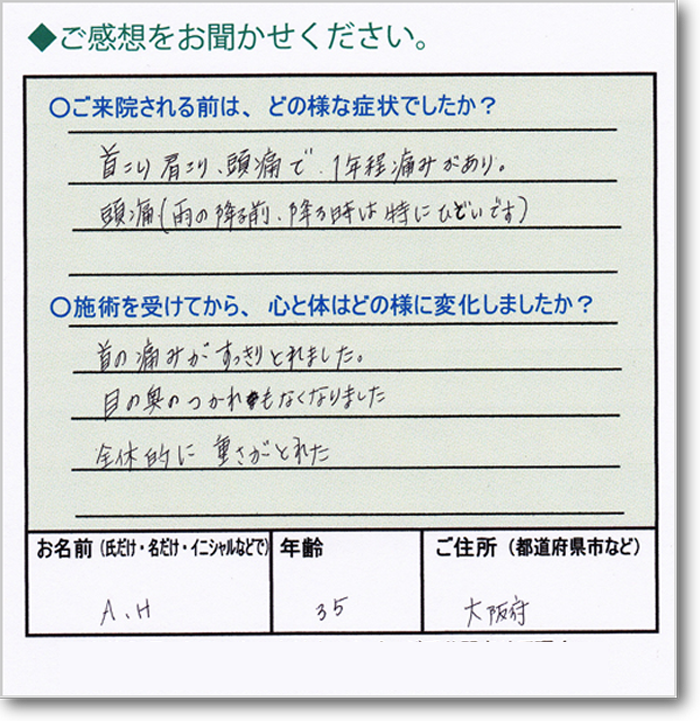 ◆ご感想をお聞かせください。
○ご来院される前は、どの様な症状でしたか？
首こり肩こり、頭痛で、1年程痛みがあり。
頭痛(雨の降る前、降る時は特にひどいです)
○施術を受けてから、心と体はどの様に変化しましたか？
首の痛みがすっきりとれました。
目の奥のつかれもなくなりました
全体的に重さがとれた
お名前（氏だけ・名だけ・イニシャルなどで） 年齢 ご住所（都道府県市など）
A.H 35 大阪府